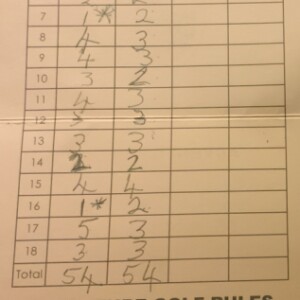 7 1* 2
8 4 3
9 4 3
10 3 2
11 4 3
12 3 3
13 3 3
14 2 2
15 4 4
16 1* 2
17 5 3
18 3 3
Total 54 54
GOLF RULES